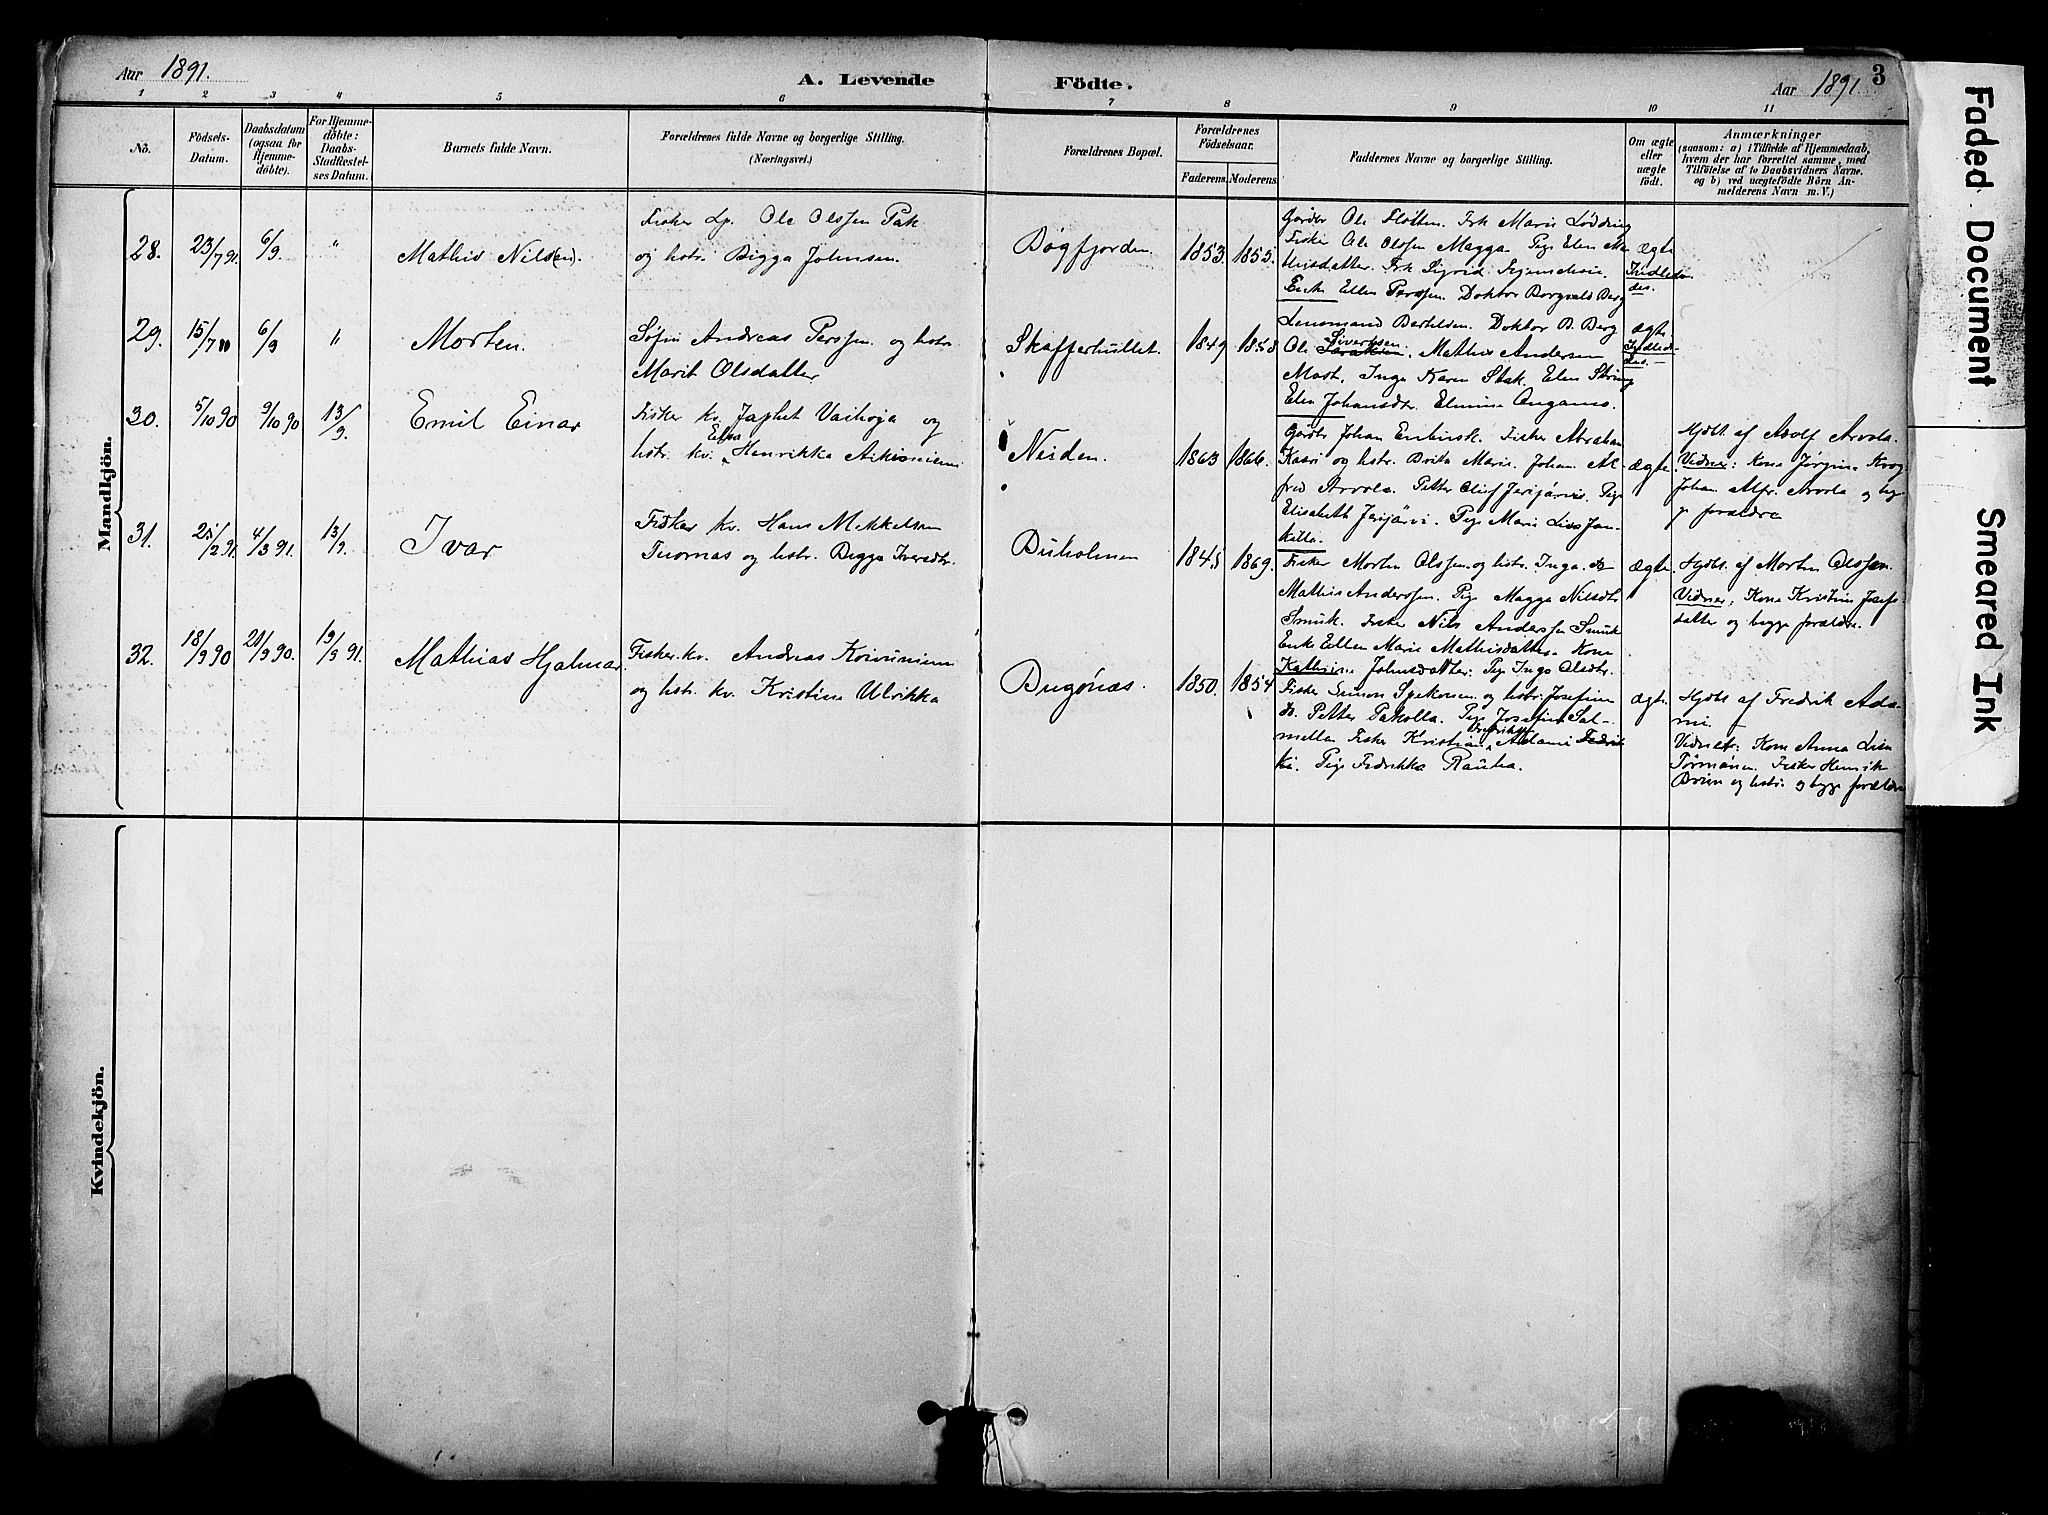 Aar 1891. A. Levende Födte. Aar 1891. 3
1 2 3 4 5 6 7 8 9 10 11
No.
Födsels-
Datum.
Daabsdatum
(ogsaa for
Hjemme-
döbte).
For Hjemme-
döbte:
Daabs-
Stadfæstel-
ses Datum.
Barnets fulde Navn.
Forældrenes fulde Navne og borgerlige Stilling.
(Næringsvei.)
Forældrenes Bopæl.
Forældrenes
Födselsaar.
Faderens. Moderens.
Faddernes Navne og borgerlige Stilling.
Om ægte
eller
uægte
födt.
Anmærkninger
(saasom: a) i Tilfælde af Hjemmedaab,
hvem der har forrettet samme, med
Tilföielse af to Daabsvidners Navne.
og b) ved uægtefödte Börn An-
melderens Navn m. V.)
Mandkjön.
28. 23/7 91. 6/9. " Mathis Nils(en).
Fisker Lp. Ole Olssen Pak
og hstr. Bigga Johnsen.
Bøgfjorden. 1853. 1855.
Gårdbr Ole Flötten. Frk Marie Lødding
Fisker Ole Olssen Magga. Pige Elen Ma-
thisdatter. Frk Sigrid
Enke Ellen Perssen. Doktor Borgvald Berg
ægte
29. 15/7 " 6/9 " Morten.
Søfin Andreas Perssen. og hstr.
Marit Olsdatter
Skafferhullet. 1849 1858
Lensmand Bertelsen. Doktor B. Berg
Ole Sivertsen. Mathis Andersen
Inga Karen Elen
Elen Johansdtr. Elmine
ægte
30. 5/10 90 9/10 90 13/9. Emil Einar
Fisker kv. Japhet Vaihoja og
hstr. kv. Elsa Henrikka
Neiden. 1863 1866.
Gårdbr Johan Fisker Abraham
Kaari og hstr. Brita Marie. Johan Al-
fred Arvola. Petter Olof Jerijärvi. Pige
Elisabeth Jerijärvi. Pige Marie Lisa Jan-
killa.
ægte
Hjdbt. af Adolf Arvola.
Vidner: Kone Jørgine Krog
Johan Alfr. Arvola og beg-
ge forældre
31. 25/2 91. 4/3 91. 13/9. Ivar
Fisker kv. Hans Mikkelsen
Tuornas og hstr. Bigga Iversdtr.
Buholmen 1845 1869.
Fisker Morten Olssen. og hstr. Inga. do
Mathis Anderssen. Pige Magga Nilsdtr
Smuk. Fisker Nils Anderssen Smuk
Enke Ellen Marie Mathisdatter Kone
Kathrine Johnsdatter: Pige Inga Olsdtr.
ægte.
Hjdbt. af Morten Olssen.
Vidner: Kone Kristine Josefs-
datter og begge forældre.
32. 18/9 90 21/9 90. 19/9 91. Mathias Hjalmar.
Fisker. kv. Andreas Koivuniemi
og hstr. kv. Kristina Ulrikka
Bugønæs. 1850. 1854
Fisker Simon og hstr. Josefine
do. Petter Pakolla. Pige Josefine Sal-
mella Fisker Kristian Fredriksen Adami
Pige Fedrikka Rauha.
ægte.
Hjdbt af Fredrik Ada-
mi.
Vidner: Kone Anna Lisa
Törmänen. Fisker Henrik
og hstr. og begge forældre
Kvindekjön.
Faded Document
Smeared Ink